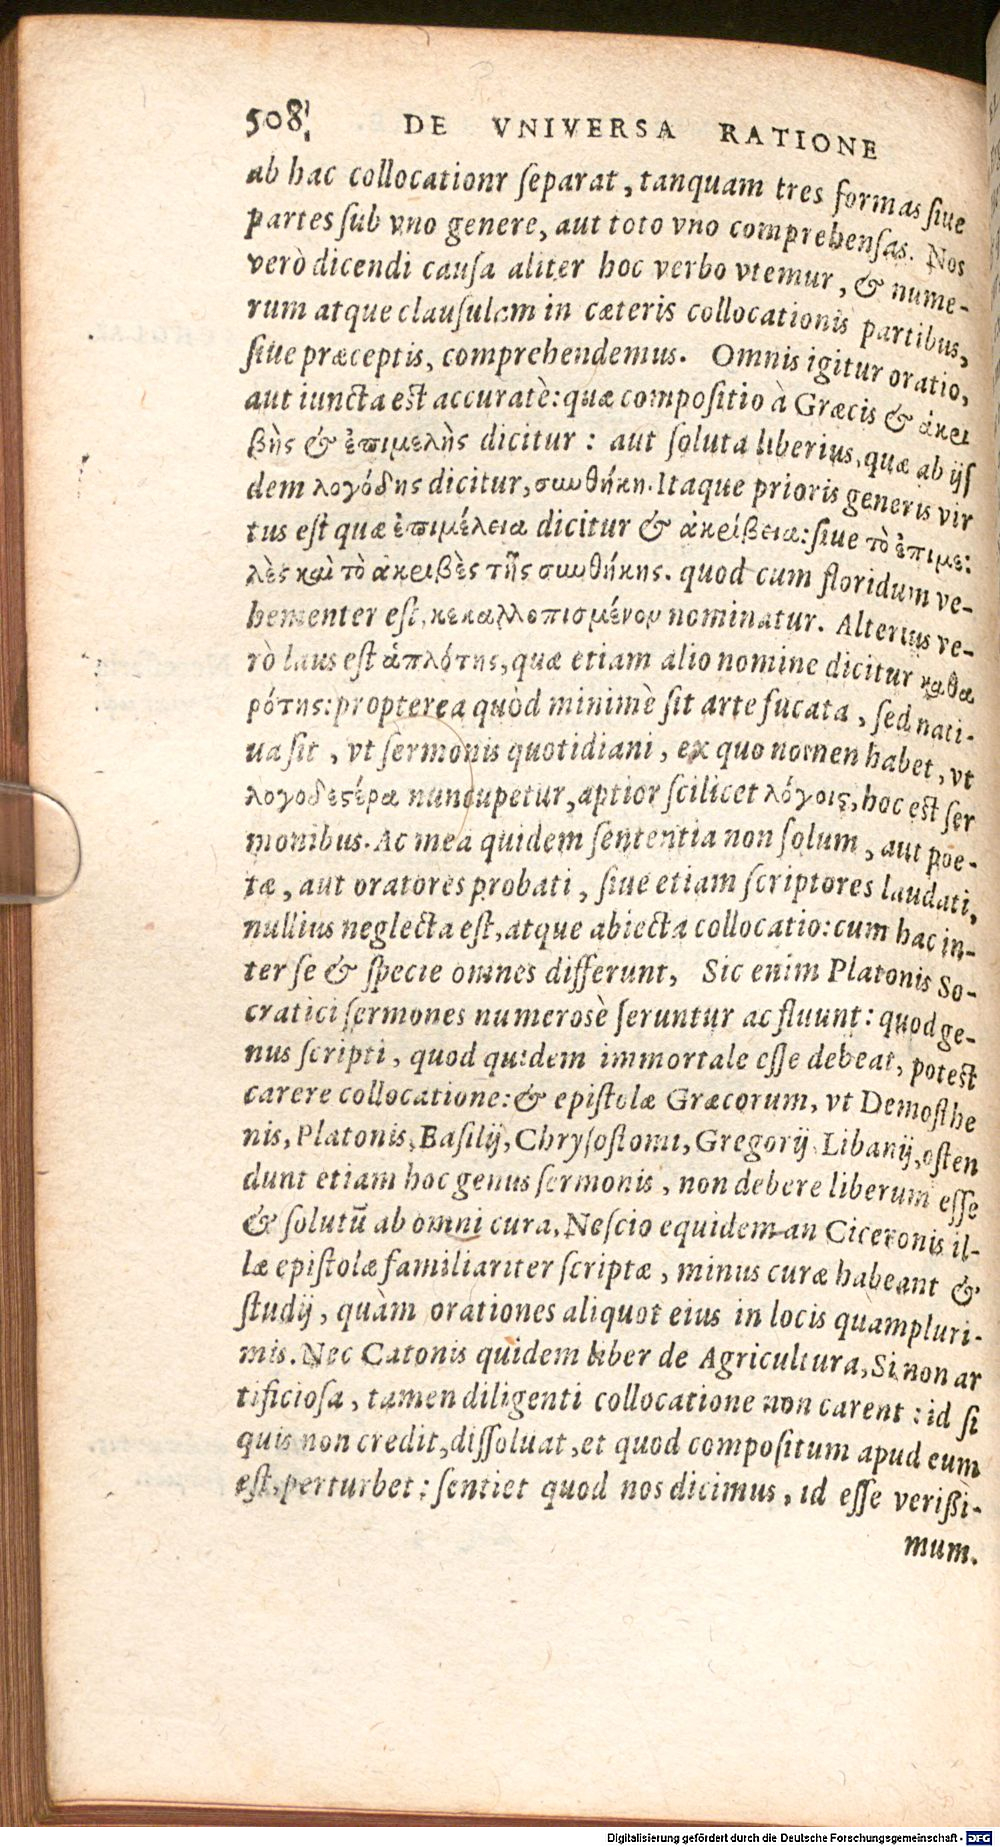 508
DE VNIVERSA RATIONE
ab hac collocationr ſeparat, tanquam tres formas ſiue
partes ſub vno genere, aut toto vno comprehenſas. Nos
verò dicendi cauſa aliter hoc verbo vtemur, & nume-
rum atque clauſulam in cæteris collocationis partibus,
ſiue præceptis, comprehendemus. Omnis igitur oratio,
aut iuncta eſt accuratè: quæ compoſitio à Græcis & ἀκρι
βὴς & ἐπιμελὴς dicitur: aut ſoluta liberius, quæ ab ijſ
dem λογώδης dicitur, συνθήκη. Itaque prioris generis vir
tus eſt quæ ἐπιμέλεια dicitur & ἀκρίβεια: ſiue τὸ ἐπιμε:
λὲς καὶ τὸ ἀκριβὲς τῆς συνθήκης. quod cum floridum ve-
hementer eſt, κεκαλλοπισμένον nominatur. Alterius ve-
rò laus eſt ἁπλότης, quæ etiam alio nomine dicitur καθα
ρότης: propterea quòd minimè ſit arte fucata, ſed nati-
ua ſit, vt ſermonis quotidiani, ex quo nomen habet, vt
λογοδεςέρα nuncupetur, aptior ſcilicet λόγοις, hoc eſt ſer
monibus. Ac mea quidem ſententia non ſolum, aut poe-
tæ, aut oratores probati, ſiue etiam ſcriptores laudati,
nullius neglecta eſt, atque abiecta collocatio: cum hac in-
ter ſe & ſpecie omnes differunt, Sic enim Platonis So-
cratici ſermones numerosè feruntur ac fluunt: quod ge-
nus ſcripti, quod quidem immortale eſſe debeat, poteſt
carere collocatione: & epiſtolæ Græcorum, vt Demoſthe
nis, Platonis, Baſilij, Chryſoſtomi, Gregorij Libanij, oſten
dunt etiam hoc genus ſermonis, non debere liberum eſſe
& ſolutū ab omni cura, Neſcio equidem an Ciceronis il-
læ epiſtolæ familiariter ſcriptæ, minus curæ habeant &
ſtudij, quàm orationes aliquot eius in locis quàmpluri-
mis. Nec Catonis quidem liber de Agricultura, Si non ar
tificioſa, tamen diligenti collocatione non carent: id ſi
quis non credit, diſſoluat, et quod compoſitum apud eum
eſt, perturbet: ſentiet quod nos dicimus, id eſſe verißi-
mum.
Digitalisierung gefördert durch die Deutsche Forschungsgemeinschaft - DFG